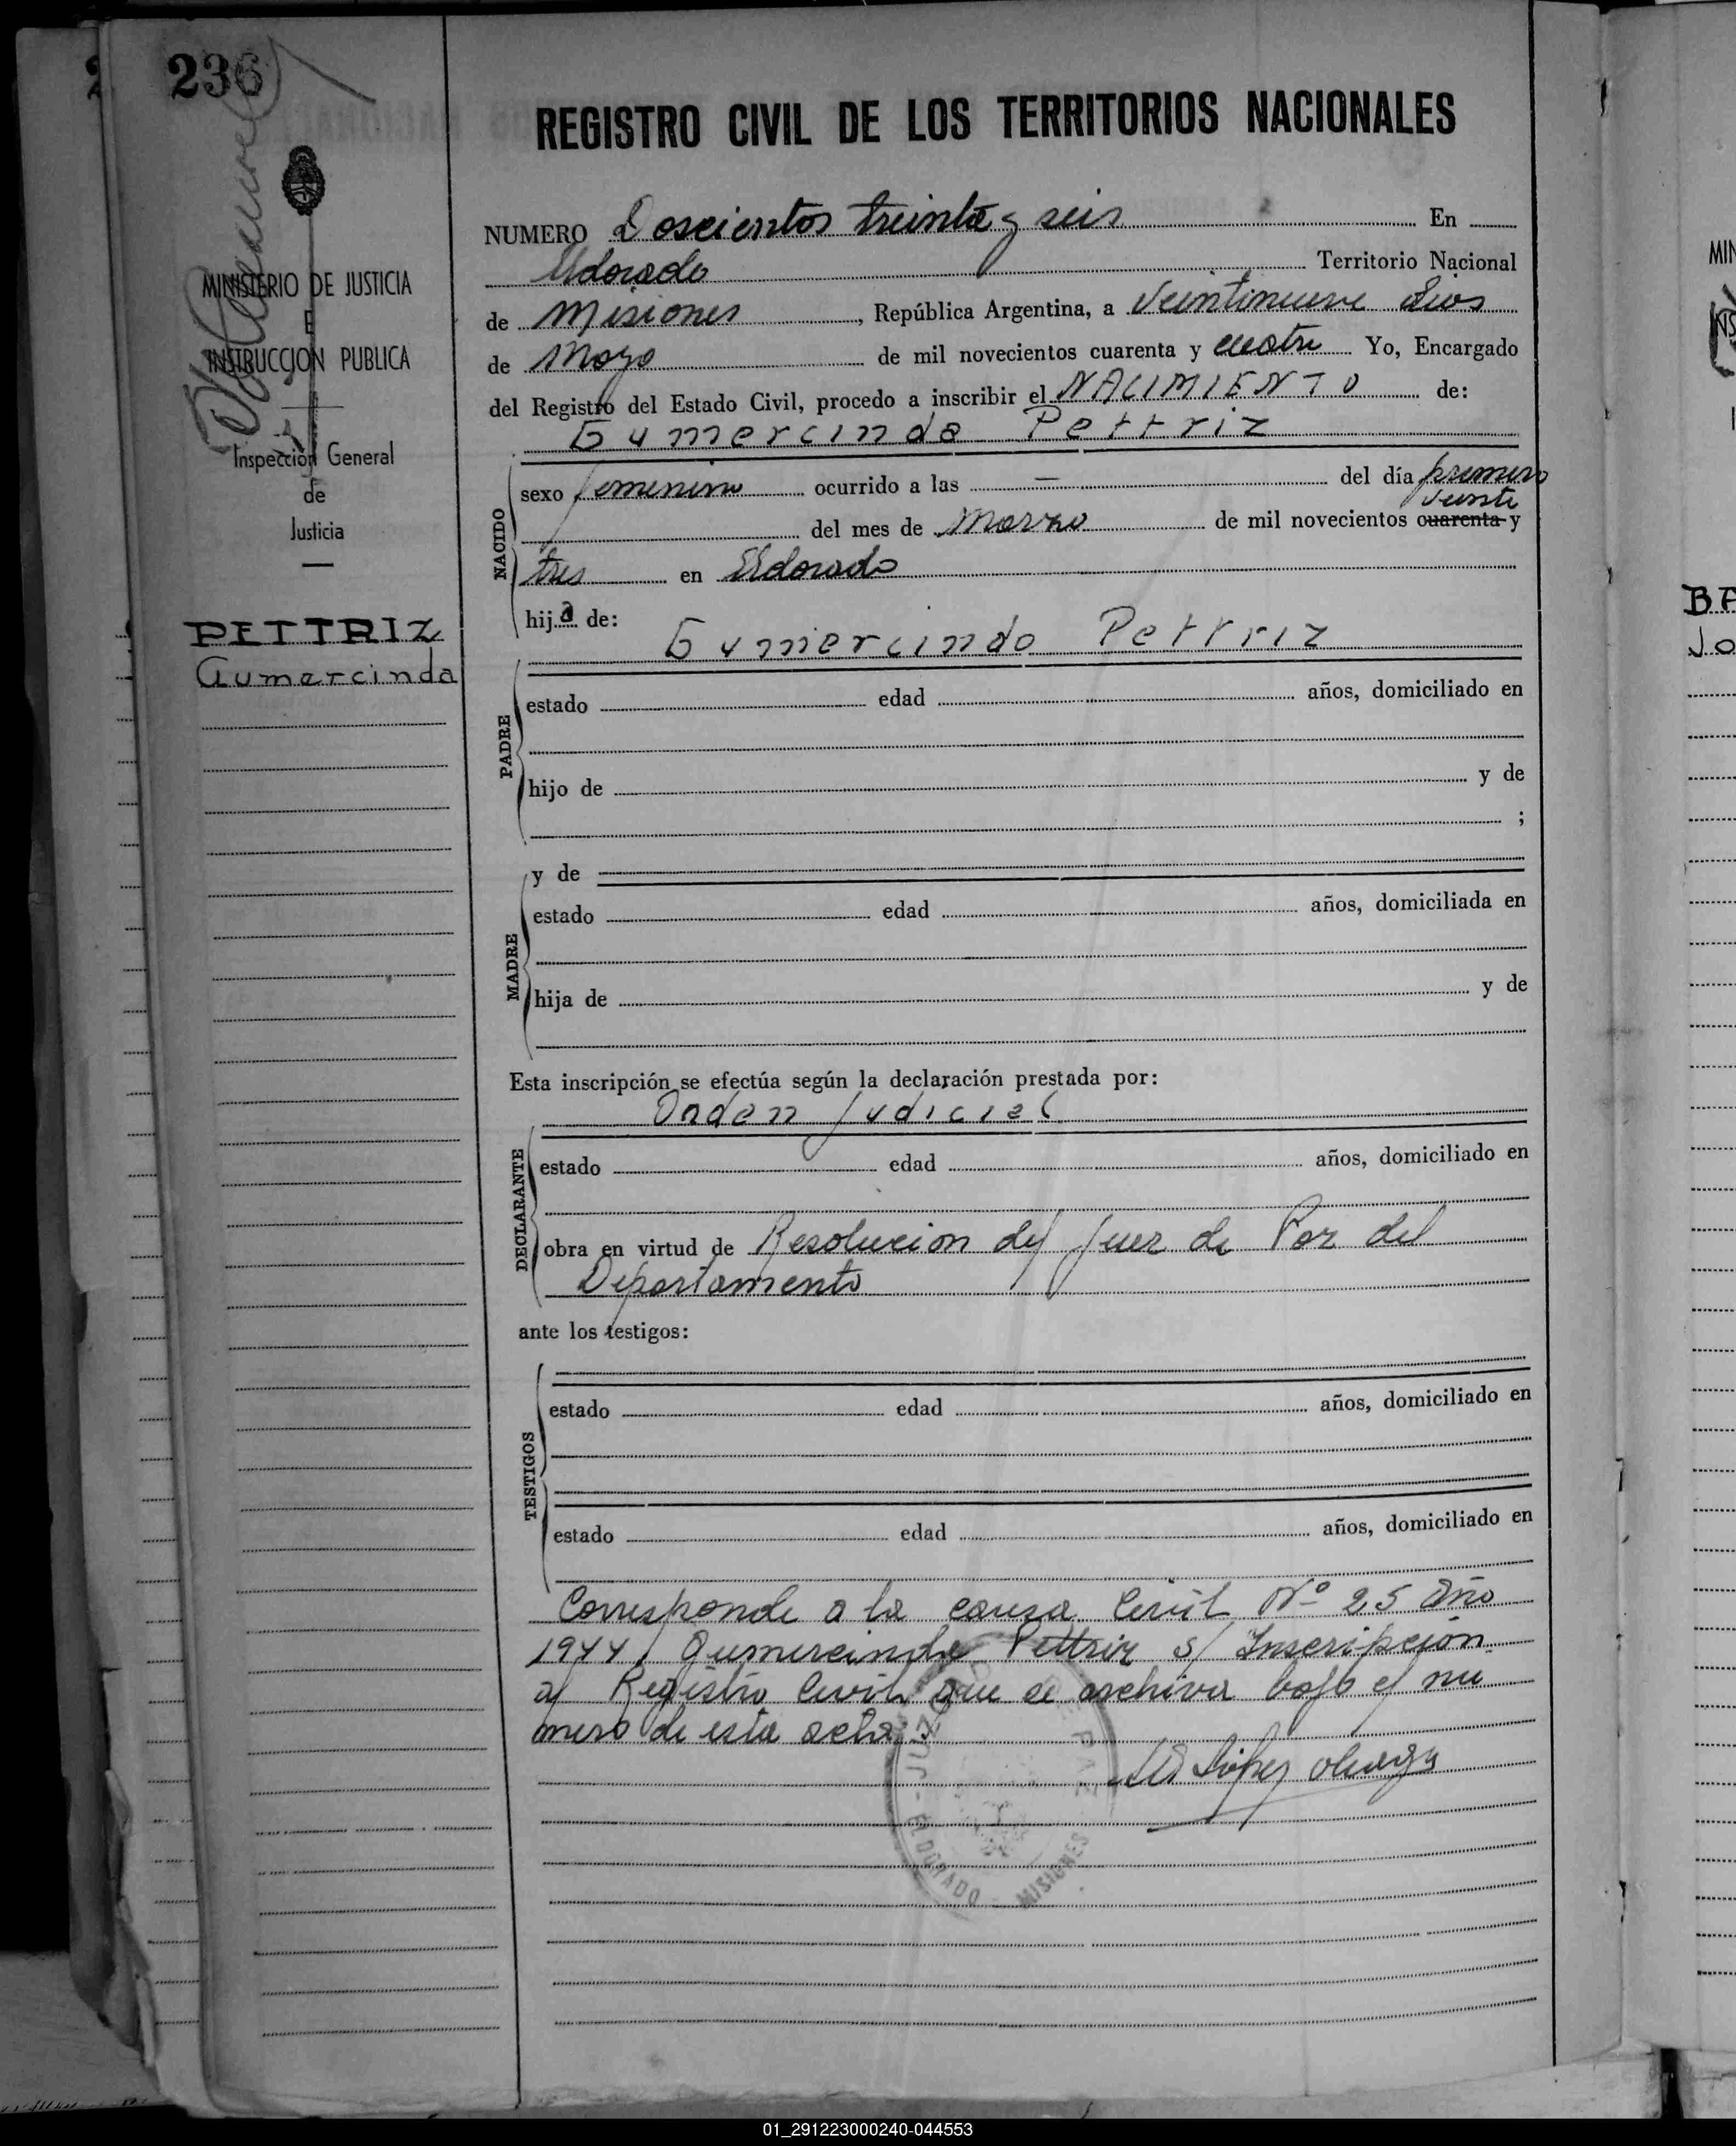 236
REGISTRO CIVIL DE LOS TERRITORIOS NACIONALES
NUMERO Doscientos treinta y seis En
Eldorado Territorio Nacional
de Misiones, República Argentina, a Veintinueve dias
de Mayo de mil novecientos cuarenta y cuatro Yo, Encargado
del Registro del Estado Civil, procedo a inscribir el NACIMIENTO de:
Gumercinda Pettriz
NACIDO
sexo femenino ocurrido a las — del día primero
veinte
del mes de Marzo de mil novecientos cuarenta y
tres en Eldorado
hija de:
Gumercindo Pettriz
PADRE
estado edad años, domiciliado en
hijo de y de
;
MADRE
y de
estado edad años, domiciliada en
hija de y de
Esta inscripción se efectúa según la declaración prestada por:
Orden Judicial
DECLARANTE
estado edad años, domiciliado en
obra en virtud de Resolucion del Juez de Paz del
Departamento
ante los testigos:
TESTIGOS
estado edad años, domiciliado en
estado edad años, domiciliado en
Corresponde a la causa Civil Nº 25 Año
1944, Gumercinda Pettriz s/ Inscripción
al Registro Civil que se archiva bajo el nu
mero de esta acta.
JUZGADO DE PAZ
ELDORADO MISIONES
MINISTERIO DE JUSTICIA
E
INSTRUCCION PUBLICA
Inspección General
de
Justicia
PETTRIZ
Gumercinda
MIN
INS
BA
JO
01_291223000240-044553